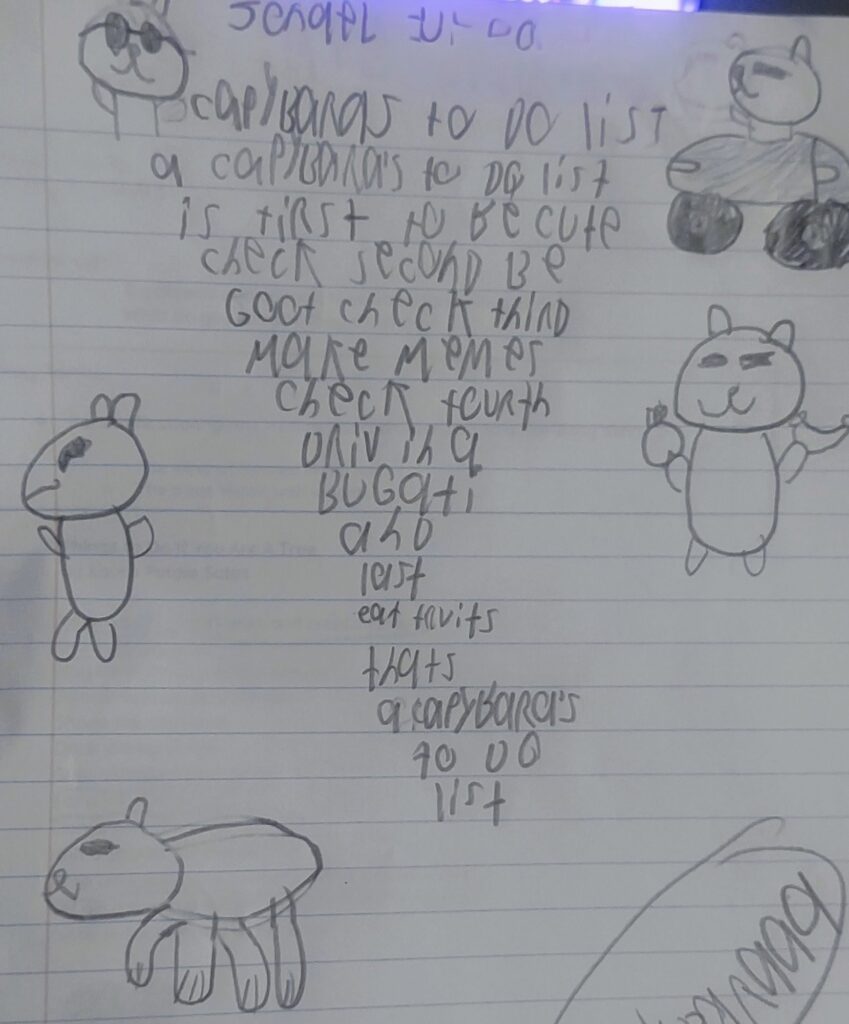 capybaras to Do list
a capybara's to Do list
is first to Be cute
check second Be
Goot check third
Make Memes
check fourth
Driving a
BUGati
and
last
eat fruits
thats
a capybara's
to do
list